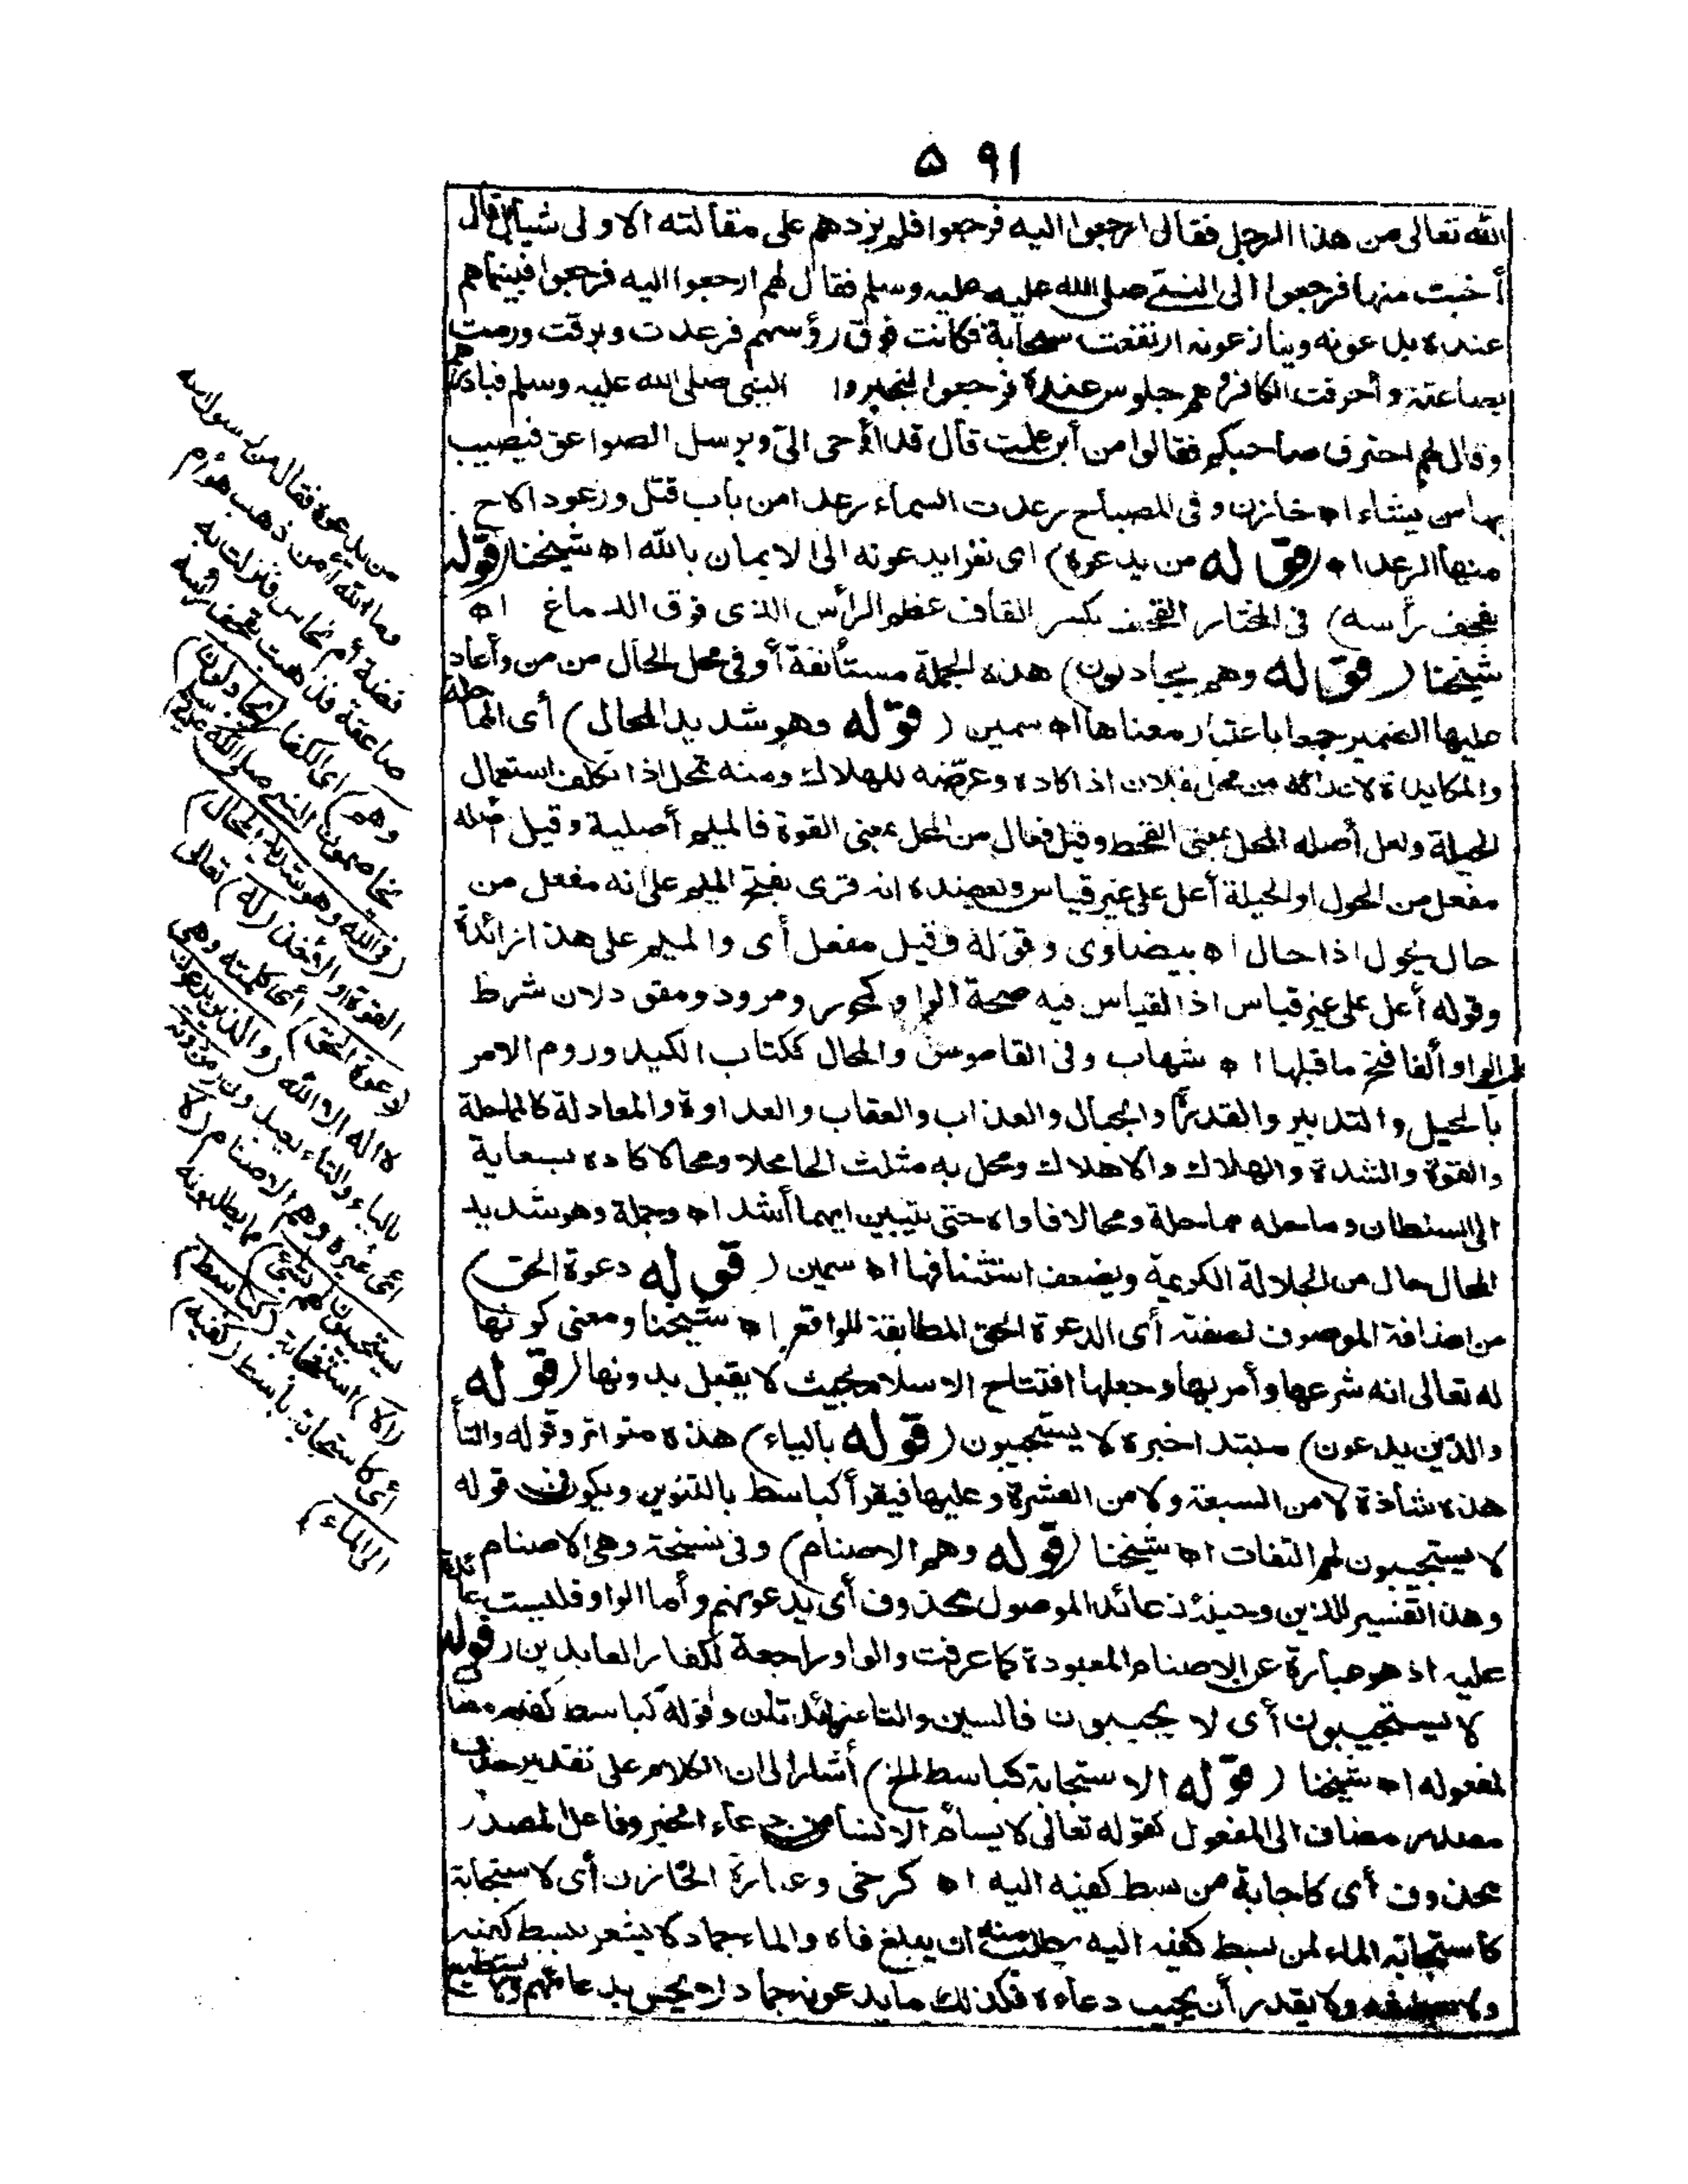 ٥٩١
الله تعالى من هذا الرجل فقال ارجعوا اليه فرجعوا فلم يزدهم على مقالته الاولى شيأ بل قال
أخبث منها فرجعوا الى النبي صلى الله عليه وسلم فقال لهم ارجعوا اليه فرجعوا فبينما هم
عنده يدعونه وينازعونه ارتفعت سحابة فكانت فوق رؤسهم فرعدت وبرقت ورمت
بصاعقة وأحرقت الكافر وهم جلوس عنده فرجعوا ليخبروا النبي صلى الله عليه وسلم فبادرهم
وقال لهم احترق صاحبكم فقالوا من أين علمت قال قد أوحى الىّ ويرسل الصواعق فيصيب
بها من يشاء اه خازن وفى المصباح رعدت السماء رعدا من باب قتل ورعودا لاح
منها الرعد اه (قوله من يدعوه) اى نفرا يدعونه الى الايمان بالله اه شيخنا (قوله
بقحف رأسه) فى المختار القحف بكسر القاف عظم الرأس الذى فوق الدماغ اه
شيخنا (قوله وهم يجادلون) هذه الجملة مستأنفة أو فى محل الحال من من وأعاد
عليها الضمير جمعا باعتبار معناها اه سمين (قوله وهو شديد المحال) أى المماحلة
والمكايدة لاعدائه من محل بفلان اذا كاده وعرّضه للهلاك ومنه تمحل اذا تكلف استعمال
الحيلة ولعل أصله المحل بمعنى القحط وقيل فعال من المحل بمعنى القوة فالميم أصلية وقيل أصله
مفعل من الحول او الحيلة أعل على غير قياس ويعضده انه قرى بفتح الميم على انه مفعل من
حال يحول اذا حال اه بيضاوى وقوله وقيل مفعل أى والميم على هذا زائدة
وقوله أعل على غير قياس اذ القياس فيه صحة الواو كمحور ومرود ومقود لان شرط
قلب الواو ألفا فتح ما قبلها اه شهاب وفى القاموس والمحال ككتاب الكيد وروم الامر
بالحيل والتدبير والقدرة والجدال والعذاب والعقاب والعداوة والمعادلة كالمماحلة
والقوة والشدة والهلاك والاهلاك ومحل به مثلث الحا محلا ومحالا كاده بسعاية
الى السلطان وماحله مماحلة ومحالا قاواه حتى يتبين ايهما أشد اه وجملة وهو شديد
المحال حال من الجلالة الكريمة ويضعف استئنافها اه سمين (قوله دعوة الحق)
من اضافة الموصوف لصفته أى الدعوة الحق المطابقة للواقع اه شيخنا ومعنى كونها
له تعالى انه شرعها وأمر بها وجعلها افتتاح الاسلام بحيث لا يقبل بدونها (قوله
والذين يدعون) مبتدا خبره لا يستجيبون (قوله بالياء) هذه متواتر وقوله والتا
هذه شاذة لا من السبعة ولا من العشرة وعليها فيقرأ كباسط بالتنوين ويكون فى قوله
لا يستجيبون لهم التفات اه شيخنا (قوله وهم الاصنام) وفى نسخة وهى الاصنام
وهذا تفسير للذين وحينئذ عائد الموصول محذوف أى يدعونهم وأما الواو فليست عائدة
عليه اذ هو عبارة عن الاصنام المعبودة كما عرفت والواو راجعة للكفار العابدين (قوله
لا يستجيبون أى لا يجيبون فالسين والتا زائدتان وقوله كباسط كفيه مضا
لمفعوله اه شيخنا (قوله الا استجابة كباسط الخ) أشار الى ان الكلام على تقدير حذف
مصدر مضاف الى المفعول كقوله تعالى لا يسأم الانسان من دعاء الخير وفاعل المصدر
محذوف أى كاجابة من بسط كفيه اليه اه كرخى وعبارة الخازن أى لا استجابة
كاستجابة الماء لمن بسط كفيه اليه يطلب منه ان يبلغ فاه والماء جماد لا يشعر ببسط كفيه
ولا ولا يقدر أن يجيب دعاءه فكذلك ما يدعونه جماد لا يحس بدعائهم ولا يستطيع
من يدعوه فقال من رسول الله
وما الله أمن ذهب هو أم
فضة أم نحاس فنزلت به
صاعقة فذهبت بقحف رأسه
(وهم) اى الكفار (يجادلون)
يخاصمون النبي صلى الله عليه وسلم
(فى الله وهو شديد المحال)
القوة او الاخذ (له) تعالى
(دعوة الحق) أى كلمته وهى
لا اله الا الله (والذين يدعون)
بالياء والتاء يعبدون (من دونه)
أى غيره وهم الاصنام (لا
يستجيبون لهم بشئ) مما يطلبونه
(الا) استجابة (كباسط)
أى كاستجابة باسط (كفيه
الى الماء)